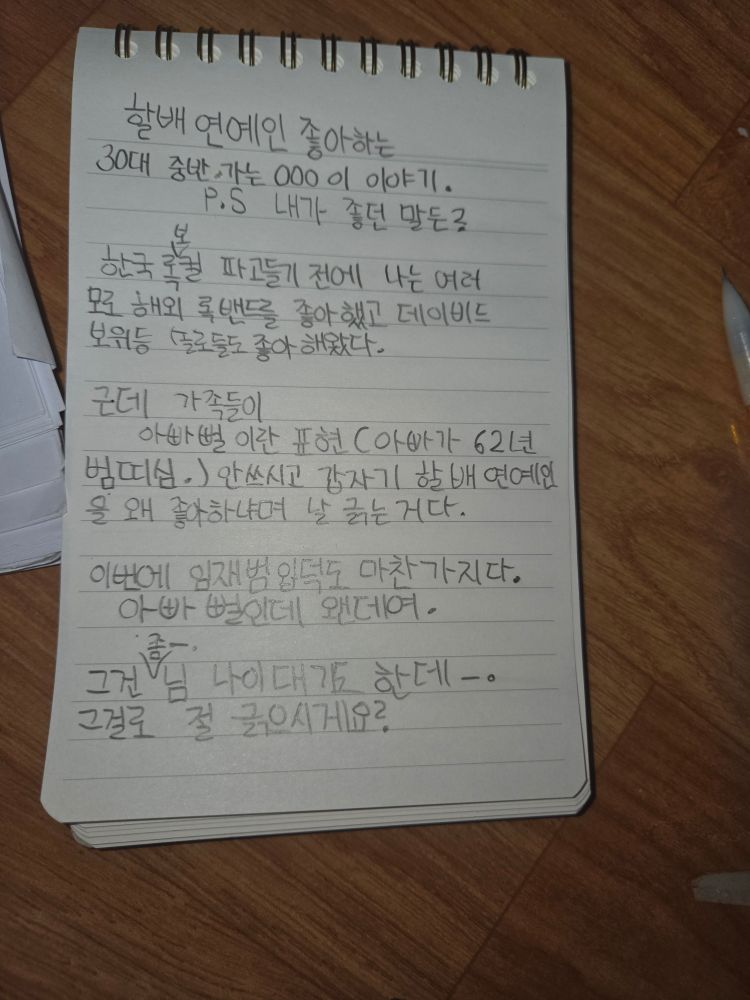 할배 연예인 좋아하는
30대 중반.가는 OOO이 이야기.
P.S 내가 좋던 말든
보
한국 록컬 파고들기 전에 나는 여러
모로 해외 록밴드를 좋아했고 데이비드
보위등 솔로들도 좋아해왔다.
근데 가족들이
아빠뻘 이란 표현(아빠가 62년
범띠심.) 안쓰시고 갑자기 할배 연예인
을 왜 좋아하냐며 날 긁는거다.
이번에 임재범입덕도 마찬가지다.
아빠 뻘인데 왠데여.
좀-.
그건 님 나이대가도 한데-.
그걸로 절 긁으시게요?